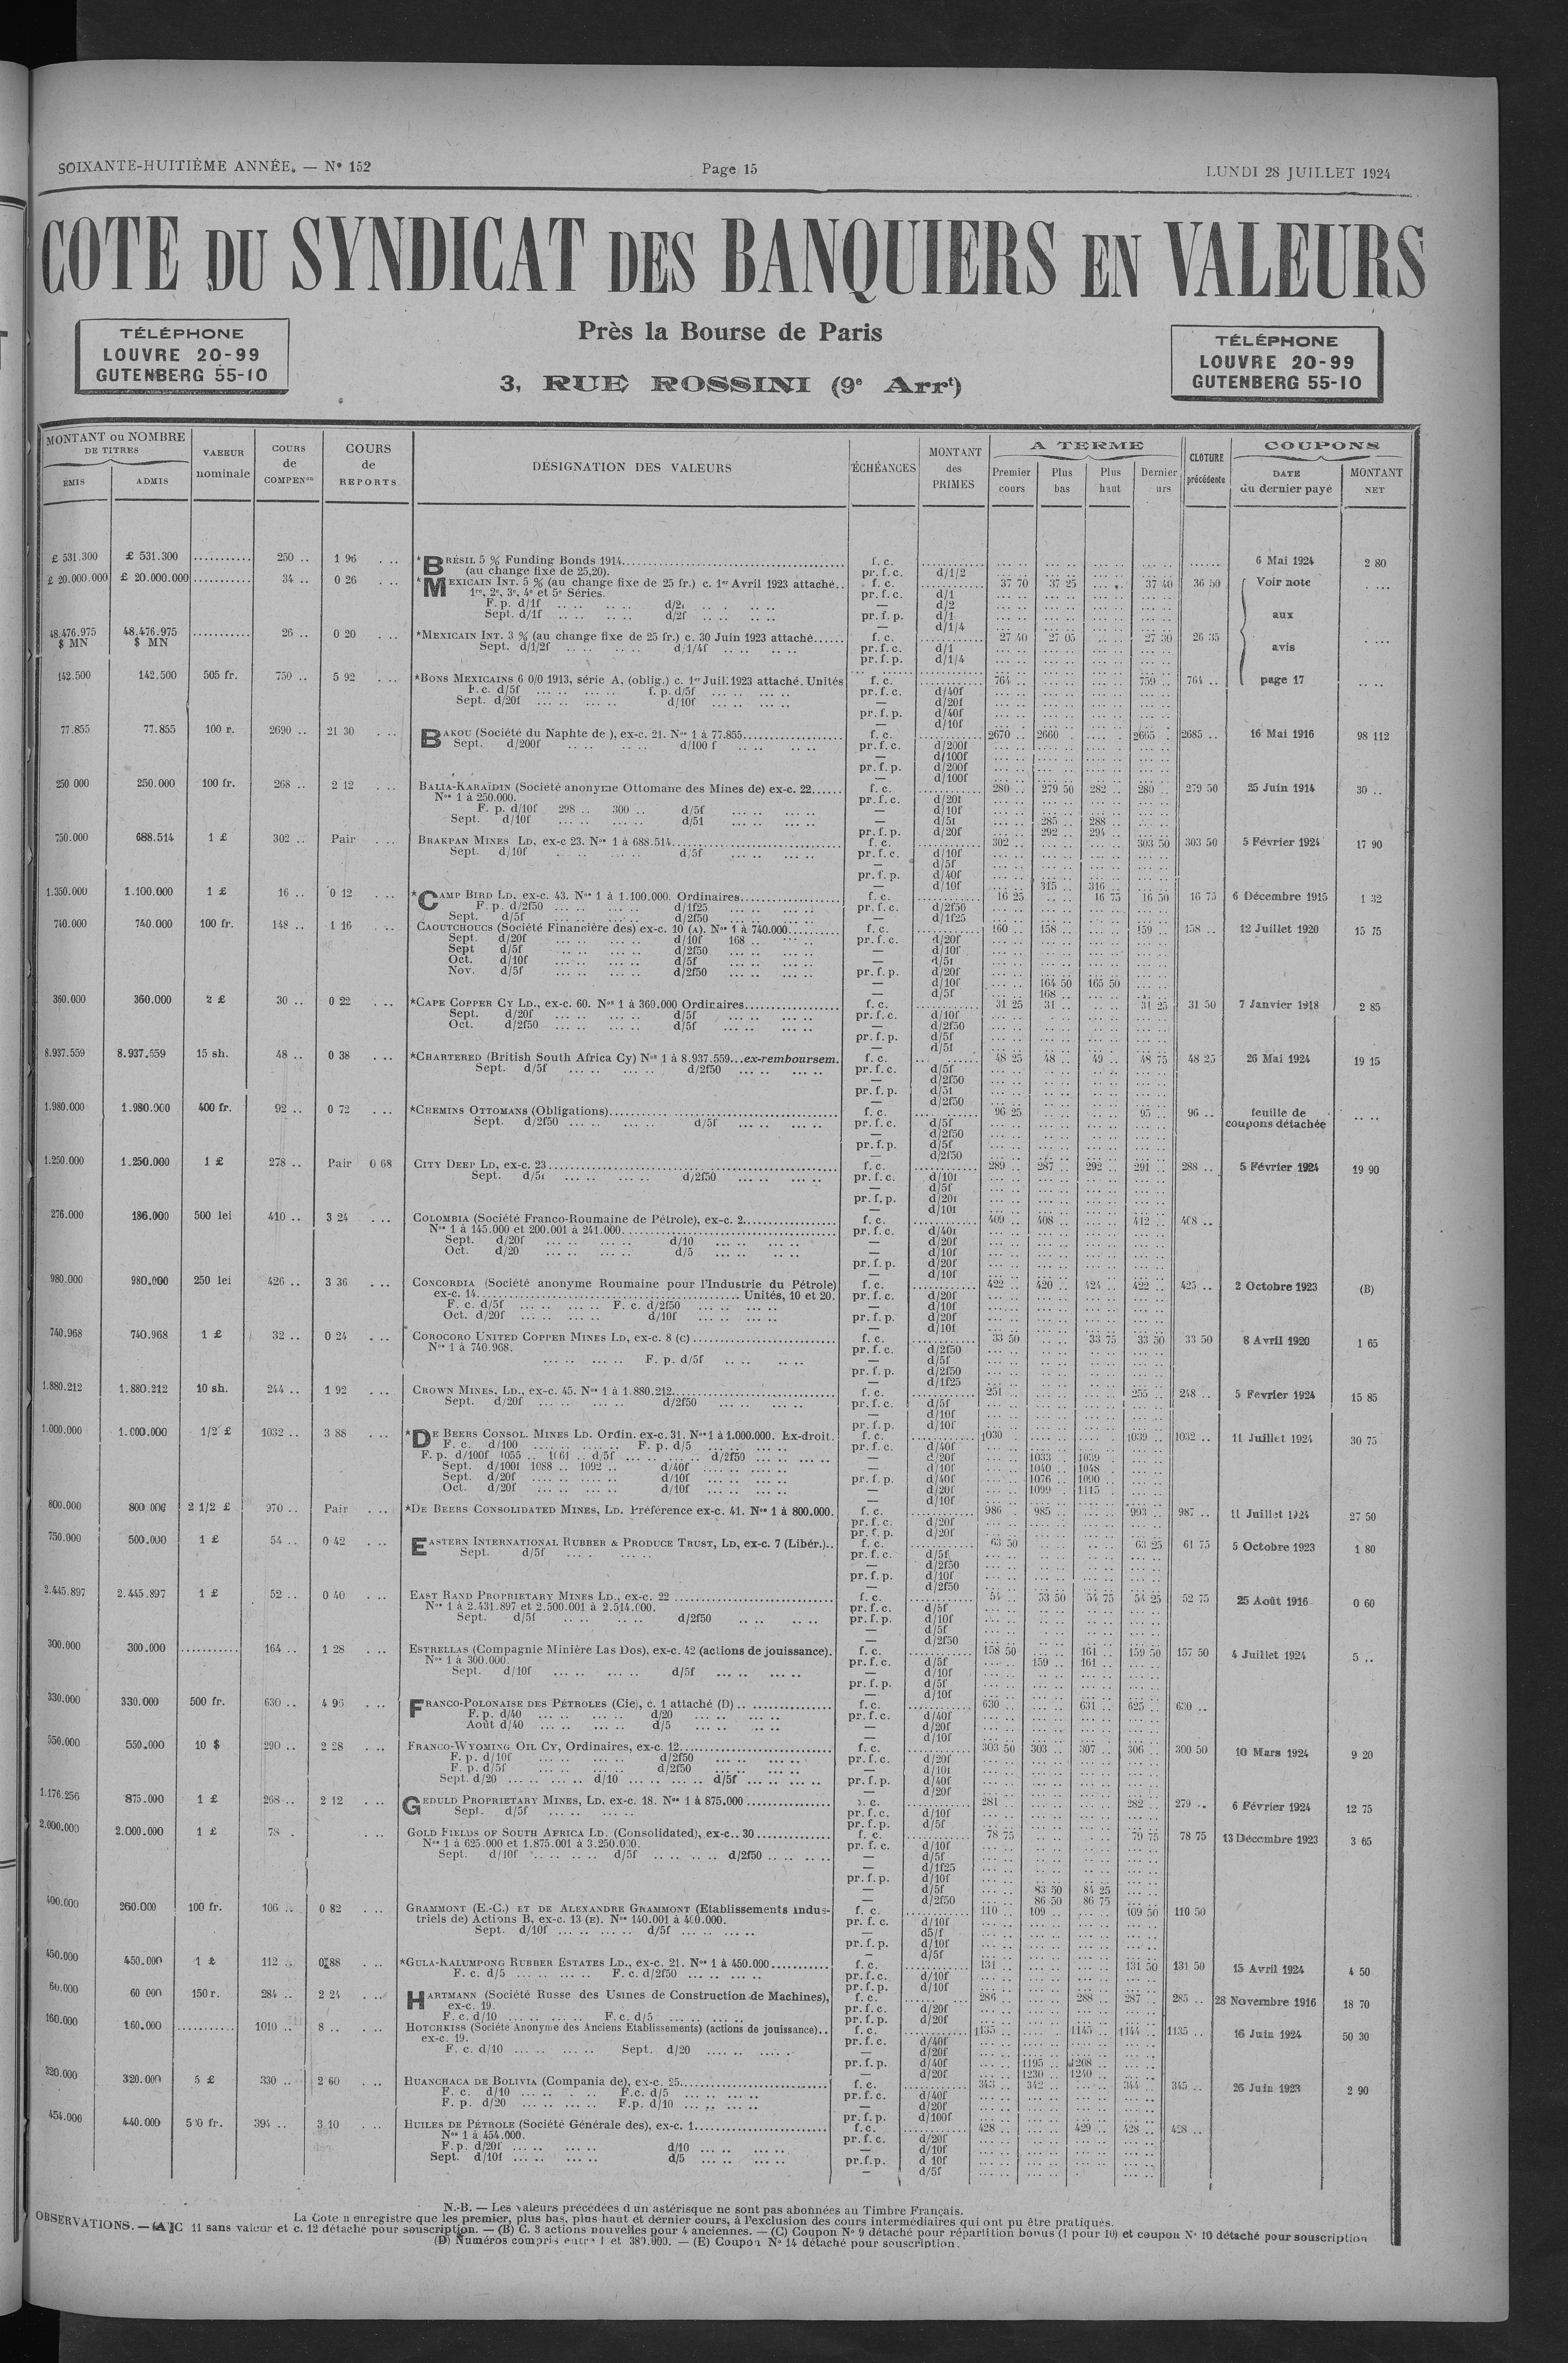 SOIXANTE-HUITIÈME ANNÉE. — N° 152
Page 15
LUNDI 28 JUILLET 1924
COTE DU SYNDICAT DES BANQUIERS EN VALEURS
TÉLÉPHONE
LOUVRE 20-99
GUTENBERG 55-10
Près la Bourse de Paris
3, RUE ROSSINI (9e Arrt)
TÉLÉPHONE
LOUVRE 20-99
GUTENBERG 55-10
MONTANT ou NOMBRE DE TITRES ÉMIS ADMIS VALEUR nominale COURS de COMPENon COURS de REPORTS DÉSIGNATION DES VALEURS ÉCHÉANCES MONTANT des PRIMES A TERME Premier cours Plus bas Plus haut Dernier CLOTURE précédente COUPONS DATE du dernier payé MONTANT NET
£ 531.300 £ 531.300 250 .. 1 96 *BRÉSIL 5 % Funding Bonds 1914 f. c. 6 Mai 1924 2 80
(au change fixe de 25,20). pr. f. c. d/1/2
£ 20.000.000 £ 20.000.000 34 .. 0 26 *MEXICAIN INT. 5 % (au change fixe de 25 fr.) c. 1er Avril 1923 attaché.. f. c. 37 70 37 25 37 40 36 50 Voir note
1re, 2e, 3e, 4e et 5e Séries. pr. f. c. d/1
F. p. d/1f — d/2
Sept. d/1f d/2f pr. f. p. d/1
— d/1/4
aux
48.476.975 $ MN 48.476.975 $ MN 26 .. 0 20 *MEXICAIN INT. 3 % (au change fixe de 25 fr.) c. 30 Juin 1923 attaché f. c. 27 40 27 05 27 30 26 35
Sept. d/1/2f d/1/4f pr. f. c. d/1 avis
pr. f. p. d/1/4
142.500 142.500 505 fr. 750 .. 5 92 *BONS MEXICAINS 6 0/0 1913, série A, (oblig.) c. 1er Juil. 1923 attaché. Unités f. c. 764 .. 759 .. 764 .. page 17
F. c. d/5f f. p. d/5f pr. f. c. d/40f
Sept. d/20f d/10f — d/20f
pr. f. p. d/40f
— d/10f
77.855 77.855 100 r. 2690 .. 21 30 BAKOU (Société du Naphte de ), ex-c. 21. Nos 1 à 77.855 f. c. 2670 .. 2660 .. 2665 .. 2685 .. 16 Mai 1916 98 112
Sept. d/200f d/100 f pr. f. c. d/200f
— d/100f
pr. f. p. d/200f
— d/100f
250 000 250.000 100 fr. 268 .. 2 12 BALIA-KARAÏDIN (Société anonyme Ottomane des Mines de) ex-c. 22 f. c. 280 .. 279 50 282 .. 280 .. 279 50 25 Juin 1914 30 ..
Nos 1 à 250.000. pr. f. c. d/20f
F. p. d/10f 298 .. 300 .. d/5f — d/10f
Sept. d/10f d/5f — d/5f 285 .. 288 ..
pr. f. p. d/20f 292 .. 294 ..
750.000 688.514 1 £ 302 .. Pair BRAKPAN MINES LD, ex-c 23. Nos 1 à 688.514 f. c. 302 .. 303 50 303 50 5 Février 1924 17 90
Sept. d/10f d/5f pr. f. c. d/10f
— d/5f
pr. f. p. d/40f
— d/10f 315 .. 316 ..
1.350.000 1.100.000 1 £ 16 .. 0 12 *CAMP BIRD LD, ex-c. 43. Nos 1 à 1.100.000. Ordinaires f. c. 16 25 16 75 16 50 16 75 6 Décembre 1915 1 32
F. p. d/2f50 d/1f25 pr. f. c. d/2f50
Sept. d/5f d/2f50 — d/1f25
740.000 740.000 100 fr. 148 .. 1 16 CAOUTCHOUCS (Société Financière des) ex-c. 10 (A). Nos 1 à 740.000 f. c. 160 .. 158 .. 159 .. 158 .. 12 Juillet 1920 15 75
Sept. d/20f d/10f 168 .. pr. f. c. d/20f
Sept d/5f d/2f50 — d/10f
Oct. d/10f d/5f — d/5f
Nov. d/5f d/2f50 pr. f. p. d/20f
— d/10f 164 50 165 50
— d/5f 168 ..
360.000 360.000 2 £ 30 .. 0 22 *CAPE COPPER CY LD., ex-c. 60. Nos 1 à 360.000 Ordinaires f. c. 31 25 31 .. 31 25 31 50 7 Janvier 1918 2 85
Sept. d/20f d/5f pr. f. c. d/10f
Oct. d/2f50 d/5f — d/2f50
pr. f. p. d/5f
— d/5f
8.937.559 8.937.559 15 sh. 48 .. 0 38 *CHARTERED (British South Africa Cy) Nos 1 à 8.937.559...ex-remboursem. f. c. 48 25 48 .. 49 .. 48 75 48 25 26 Mai 1924 19 15
Sept. d/5f d/2f50 pr. f. c. d/5f
— d/2f50
pr. f. p. d/5f
— d/2f50
1.980.000 1.980.000 400 fr. 92 .. 0 72 *CHEMINS OTTOMANS (Obligations) f. c. 96 25 95 .. 96 .. feuille de
Sept. d/2f50 d/5f pr. f. c. d/5f coupons détachée
— d/2f50
pr. f. p. d/5f
— d/2f50
1.250.000 1.250.000 1 £ 278 .. Pair 0 68 CITY DEEP LD, ex-c. 23 f. c. 289 .. 287 .. 292 .. 291 .. 288 .. 5 Février 1924 19 90
Sept. d/5f d/2f50 pr. f. c. d/10f
— d/5f
pr. f. p. d/20f
— d/10f
276.000 186.000 500 lei 410 .. 3 24 COLOMBIA (Société Franco-Roumaine de Pétrole), ex-c. 2 f. c. 409 .. 408 .. 412 .. 408 ..
Nos 1 à 145.000 et 200.001 à 241.000 pr. f. c. d/40f
Sept. d/20f d/10 — d/20f
Oct. d/20 d/5 — d/10f
pr. f. p. d/20f
— d/10f
980.000 980.000 250 lei 426 .. 3 36 CONCORDIA (Société anonyme Roumaine pour l'Industrie du Pétrole) f. c. 422 .. 420 .. 424 .. 422 .. 425 .. 2 Octobre 1923 (B)
ex-c. 14 Unités, 10 et 20. pr. f. c. d/20f
F. c. d/5f F. c. d/2f50 — d/10f
Oct. d/20f d/10f pr. f. p. d/20f
— d/10f
740.968 740.968 1 £ 32 .. 0 24 COROCORO UNITED COPPER MINES LD, ex-c. 8 (C) f. c. 33 50 33 75 33 50 33 50 8 Avril 1920 1 65
Nos 1 à 740.968. pr. f. c. d/2f50
F. p. d/5f — d/5f
pr. f. p. d/2f50
— d/1f25
1.880.212 1.880.212 10 sh. 244 .. 1 92 CROWN MINES, LD., ex-c. 45. Nos 1 à 1.880.212 f. c. 251 .. 255 .. 248 .. 5 Février 1924 15 85
Sept. d/20f d/2f50 pr. f. c. d/5f
— d/10f
pr. f. p. d/10f
1.000.000 1.000.000 1/2 £ 1032 .. 3 88 *DE BEERS CONSOL. MINES LD. Ordin. ex-c. 31. Nos 1 à 1.000.000. Ex-droit. f. c. 1030 .. 1039 .. 1032 .. 11 Juillet 1924 30 75
F. c. d/100 F. p. d/5 pr. f. c. d/40f
F. p. d/100f 1055 .. 1061 .. d/5f d/2f50 — d/20f 1033 .. 1039 ..
Sept. d/100f 1088 .. 1092 .. d/40f — d/10f 1040 .. 1048 ..
Sept. d/20f d/10f pr. f. p. d/40f 1076 .. 1090 ..
Oct. d/20f d/10f — d/20f 1099 .. 1115 ..
— d/10f
800.000 800.000 2 1/2 £ 970 .. Pair *DE BEERS CONSOLIDATED MINES, LD. Préférence ex-c. 41. Nos 1 à 800.000. f. c. 986 .. 985 .. 993 .. 987 .. 11 Juillet 1924 27 50
pr. f. c. d/20f
pr. f. p. d/20f
750.000 500.000 1 £ 54 .. 0 42 EASTERN INTERNATIONAL RUBBER & PRODUCE TRUST, LD, ex-c. 7 (Libér.).. f. c. 63 50 63 25 61 75 5 Octobre 1923 1 80
Sept. d/5f pr. f. c. d/5f
— d/2f50
pr. f. p. d/10f
— d/2f50
2.445.897 2.445.897 1 £ 52 .. 0 40 EAST RAND PROPRIETARY MINES LD., ex-c. 22 f. c. 54 .. 53 50 54 75 54 25 52 75 25 Août 1916 0 60
Nos 1 à 2.431.897 et 2.500.001 à 2.514.000. pr. f. c. d/5f
Sept. d/5f d/2f50 pr. f. p. d/10f
— d/5f
— d/2f50
300.000 300.000 164 .. 1 28 ESTRELLAS (Compagnie Minière Las Dos), ex-c. 42 (actions de jouissance). f. c. 158 50 161 .. 159 50 157 50 4 Juillet 1924 5 ..
Nos 1 à 300.000. pr. f. c. d/5f 159 .. 161 ..
Sept. d/10f d/5f — d/10f
pr. f. p. d/5f
— d/10f
330.000 330.000 500 fr. 630 .. 4 96 FRANCO-POLONAISE DES PÉTROLES (Cie), c. 1 attaché (D) f. c. 630 .. 631 .. 625 .. 630 ..
F. p. d/40 d/20 pr. f. c. d/40f
Août d/40 d/5 — d/20f
— d/10f
550.000 550.000 10 $ 290 .. 2 28 FRANCO-WYOMING OIL CY, Ordinaires, ex-c. 12 f. c. 303 50 303 .. 307 .. 306 .. 300 50 10 Mars 1924 9 20
F. p. d/10f d/2f50 pr. f. c. d/20f
F. p. d/5f d/2f50 — d/10f
Sept. d/20 d/10 d/5f pr. f. p. d/40f
— d/20f
1.176.256 875.000 1 £ 268 .. 2 12 GEDULD PROPRIETARY MINES, LD, ex-c. 18. Nos 1 à 875.000 f. c. 281 .. 282 .. 279 .. 6 Février 1924 12 75
Sept. d/5f pr. f. c. d/10f
pr. f. p. d/5f
2.000.000 2.000.000 1 £ 78 . GOLD FIELDS OF SOUTH AFRICA LD. (Consolidated), ex-c.. 30 f. c. 78 75 79 75 78 75 13 Décembre 1923 3 65
Nos 1 à 625.000 et 1.875.001 à 3.250.000. pr. f. c. d/10f
Sept. d/10f d/5f d/2f50 — d/5f
— d/1f25
pr. f. p. d/10f
— d/5f 83 50 84 25
— d/2f50 86 50 86 75
400.000 260.000 100 fr. 106 .. 0 82 GRAMMONT (E.-C.) ET DE ALEXANDRE GRAMMONT (Etablissements indus- f. c. 110 .. 109 .. 109 50 110 50
triels de) Actions B, ex-c. 13 (E). Nos 140.001 à 400.000. pr. f. c. d/10f
Sept. d/10f d/5f — d5/f
pr. f. p. d/10f
— d/5f
450.000 450.000 1 £ 112 .. 0 88 *GULA-KALUMPONG RUBBER ESTATES LD., ex-c. 21. Nos 1 à 450.000 f. c. 131 .. 131 50 131 50 15 Avril 1924 4 50
F. c. d/5 F. c. d/2f50 pr. f. c. d/10f
pr. f. p. d/10f
60.000 60 000 150 r. 284 .. 2 24 HARTMANN (Société Russe des Usines de Construction de Machines), f. c. 286 .. 288 .. 287 .. 285 .. 28 Novembre 1916 18 70
ex-c. 19. pr. f. c. d/20f
F. c. d/10 F. c. d/5 pr. f. p. d/20f
160.000 160.000 1010 .. 8 .. HOTCHKISS (Société Anonyme des Anciens Etablissements) (actions de jouissance).. f. c. 1135 .. 1145 .. 1144 .. 1135 .. 16 Juin 1924 50 30
ex-c. 19. pr. f. c. d/40f
F. c. d/10 Sept. d/20 — d/20f
pr. f. p. d/40f 1195 .. 1208 ..
— d/20f 1230 .. 1240 ..
320.000 320.000 5 £ 330 .. 2 60 HUANCHACA DE BOLIVIA (Compania de), ex-c. 25 f. c. 343 .. 342 .. 344 .. 345 .. 26 Juin 1923 2 90
F. c. d/10 F.c. d/5 pr. f. c. d/40f
F. p. d/20 F.p. d/10 — d/20f
pr. f. p. d/100f
454.000 440.000 500 fr. 394 .. 3 10 HUILES DE PÉTROLE (Société Générale des), ex-c. 1 f. c. 428 .. 429 .. 428 .. 428 ..
Nos 1 à 454.000. pr. f. c. d/20f
F. p. d/20f d/10 — d/10f
Sept. d/10f d/5 pr. f. p. d 10f
— d/5f
N.-B. — Les valeurs précédées d'un astérisque ne sont pas abonnées au Timbre Français.
La Cote n'enregistre que les premier, plus bas, plus haut et dernier cours, à l'exclusion des cours intermédiaires qui ont pu être pratiqués.
OBSERVATIONS. — (A) C 11 sans valeur et c. 12 détaché pour souscription. — (B) C. 3 actions nouvelles pour 4 anciennes. — (C) Coupon N° 9 détaché pour répartition bonus (1 pour 10) et coupon N° 10 détaché pour souscription
(D) Numéros compris entre 1 et 380.000. — (E) Coupon N° 14 détaché pour souscription.